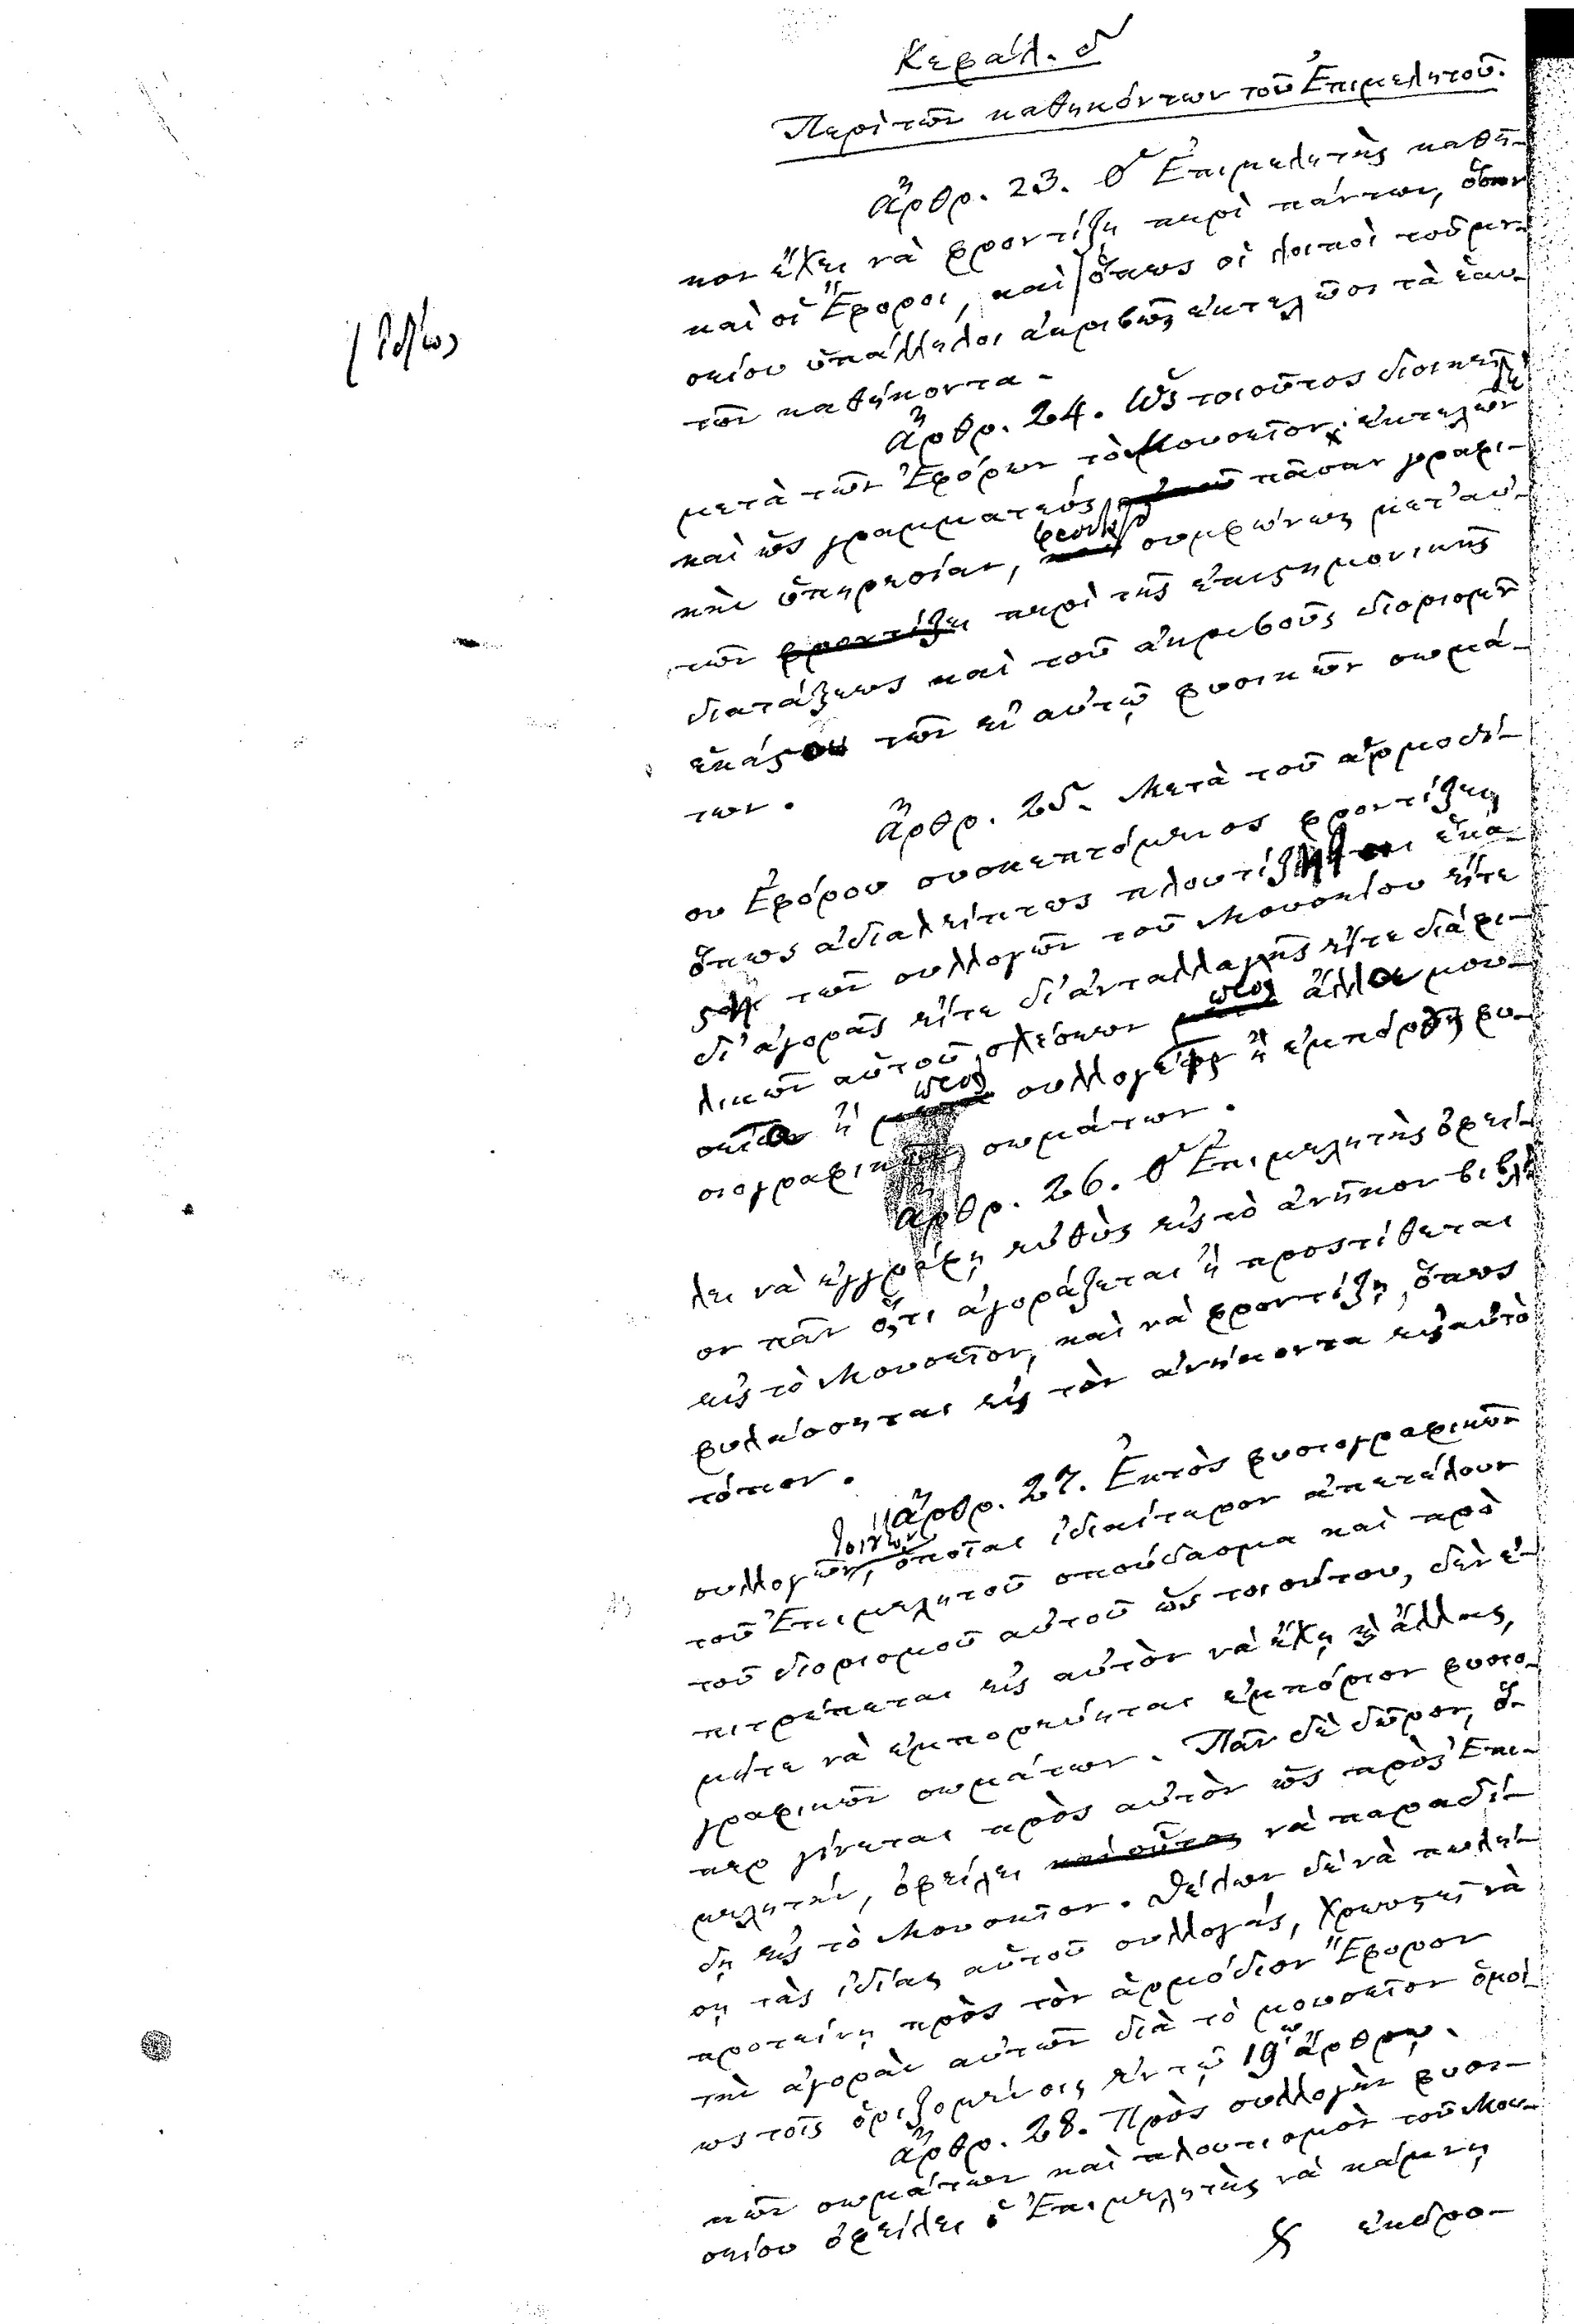 Κεφάλ. δ
Περὶ τῶν καθηκόντων τοῦ Ἐπιμελητοῦ.
Ἄρθρ. 23. Ὁ Ἐπιμελητὴς καθῆ-
κον ἔχει νὰ φροντίζῃ περὶ πάντων, ὅσων
καὶ οἱ Ἔφοροι, καὶ ὅπως οἱ λοιποὶ τοῦ μου-
σείου ὑπάλληλοι ἀκριβῶς ἐκτελῶσι τὰ ἑαυ-
τῶν καθήκοντα.
ἰδίως
Ἄρθρ. 24. Ὡς τοιοῦτος διοικεῖ
μετὰ τῶν Ἐφόρων τὸ Μουσεῖον, ἐκτελῶν δὲ
καὶ ὡς γραμματεὺς πᾶσαν γραφι-
κὴν ὑπηρεσίαν, φροντίζει συμφώνως μετ' αὐ-
τῶν φροντίζει περὶ τῆς ἐπιστημονικῆς
διατάξεως καὶ τοῦ ἀκριβοῦς διορισμοῦ
ἑκάστου τῶν ἐν αὐτῷ φυσικῶν σωμά-
των.
Ἄρθρ. 25. Μετὰ τοῦ ἁρμοδί-
ου Ἐφόρου συσκεπτόμενος φροντίζει,
ὅπως ἀδιαλείπτως πλουτίζηται ἑκά-
στη τῶν συλλογῶν τοῦ Μουσείου εἴτε
δι' ἀγορᾶς εἴτε δι' ἀνταλλαγῆς εἴτε διὰ φι-
λικῶν αὐτοῦ σχέσεων πρὸς ἄλλα μου-
σεῖα ἢ πρὸς συλλογεῖς ἢ ἐμπόρους φυ-
σιογραφικῶν σωμάτων.
Ἄρθρ. 26. Ὁ Ἐπιμελητὴς ὀφεί-
λει νὰ ἐγγράφῃ εὐθὺς εἰς τὸ ἀνῆκον βιβλί-
ον πᾶν ὅ,τι ἀγοράζεται ἢ προστίθεται
εἰς τὸ Μουσεῖον, καὶ νὰ φροντίζῃ, ὅπως
φυλάσσηται εἰς τὸν ἀνήκοντα εἰς αὐτὸ
τόπον.
Ἄρθρ. 27. Ἐκτὸς φυσιογραφικῶν
συλλογῶν, ὁποῖαι ἰδιαίτερον ἀπετέλουν
τοῦ Ἐπιμελητοῦ σπούδασμα καὶ πρὸ
τοῦ διορισμοῦ αὐτοῦ ὡς τοιούτου, δὲν ἐ-
πιτρέπεται εἰς αὐτὸν νὰ ἔχῃ ἄλλας,
μήτε νὰ ἐμπορεύηται ἐμπόριον φυσιο-
γραφικῶν σωμάτων. Πᾶν δὲ δῶρον, ὅ-
περ γίνεται πρὸς αὐτὸν ὡς πρὸς Ἐπι-
μελητήν, ὀφείλει καὶ οὗτος νὰ παραδί-
δῃ εἰς τὸ Μουσεῖον. Θέλων δὲ νὰ πωλή-
σῃ τὰς ἰδίας αὐτοῦ συλλογάς, χρεωστεῖ νὰ
προτείνῃ πρὸς τὸν ἁρμόδιον Ἔφορον
τὴν ἀγορὰν αὐτῶν διὰ τὸ μουσεῖον ὁμοί-
ως τοῖς ὁριζομένοις ἐν τῷ 19ῳ ἄρθρῳ.
Ἄρθρ. 28. Πρὸς συλλογὴν φυσι-
κῶν σωμάτων καὶ πλουτισμὸν τοῦ Μου-
σείου ὀφείλει ὁ Ἐπιμελητὴς νὰ κάμνῃ
ἐκδρο-